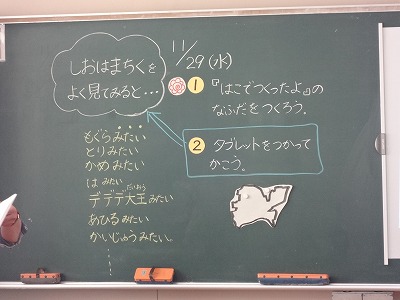 しおはまちくを
よく見てみると…
11/29(水)
1 『はこでつくったよ』の
なふだをつくろう。
2 タブレットをつかって
かこう。
もぐらみたい
とりみたい
かめみたい
はみたい
デデデ大王みたい
だいおう
あひるみたい
かいじゅうみたい。